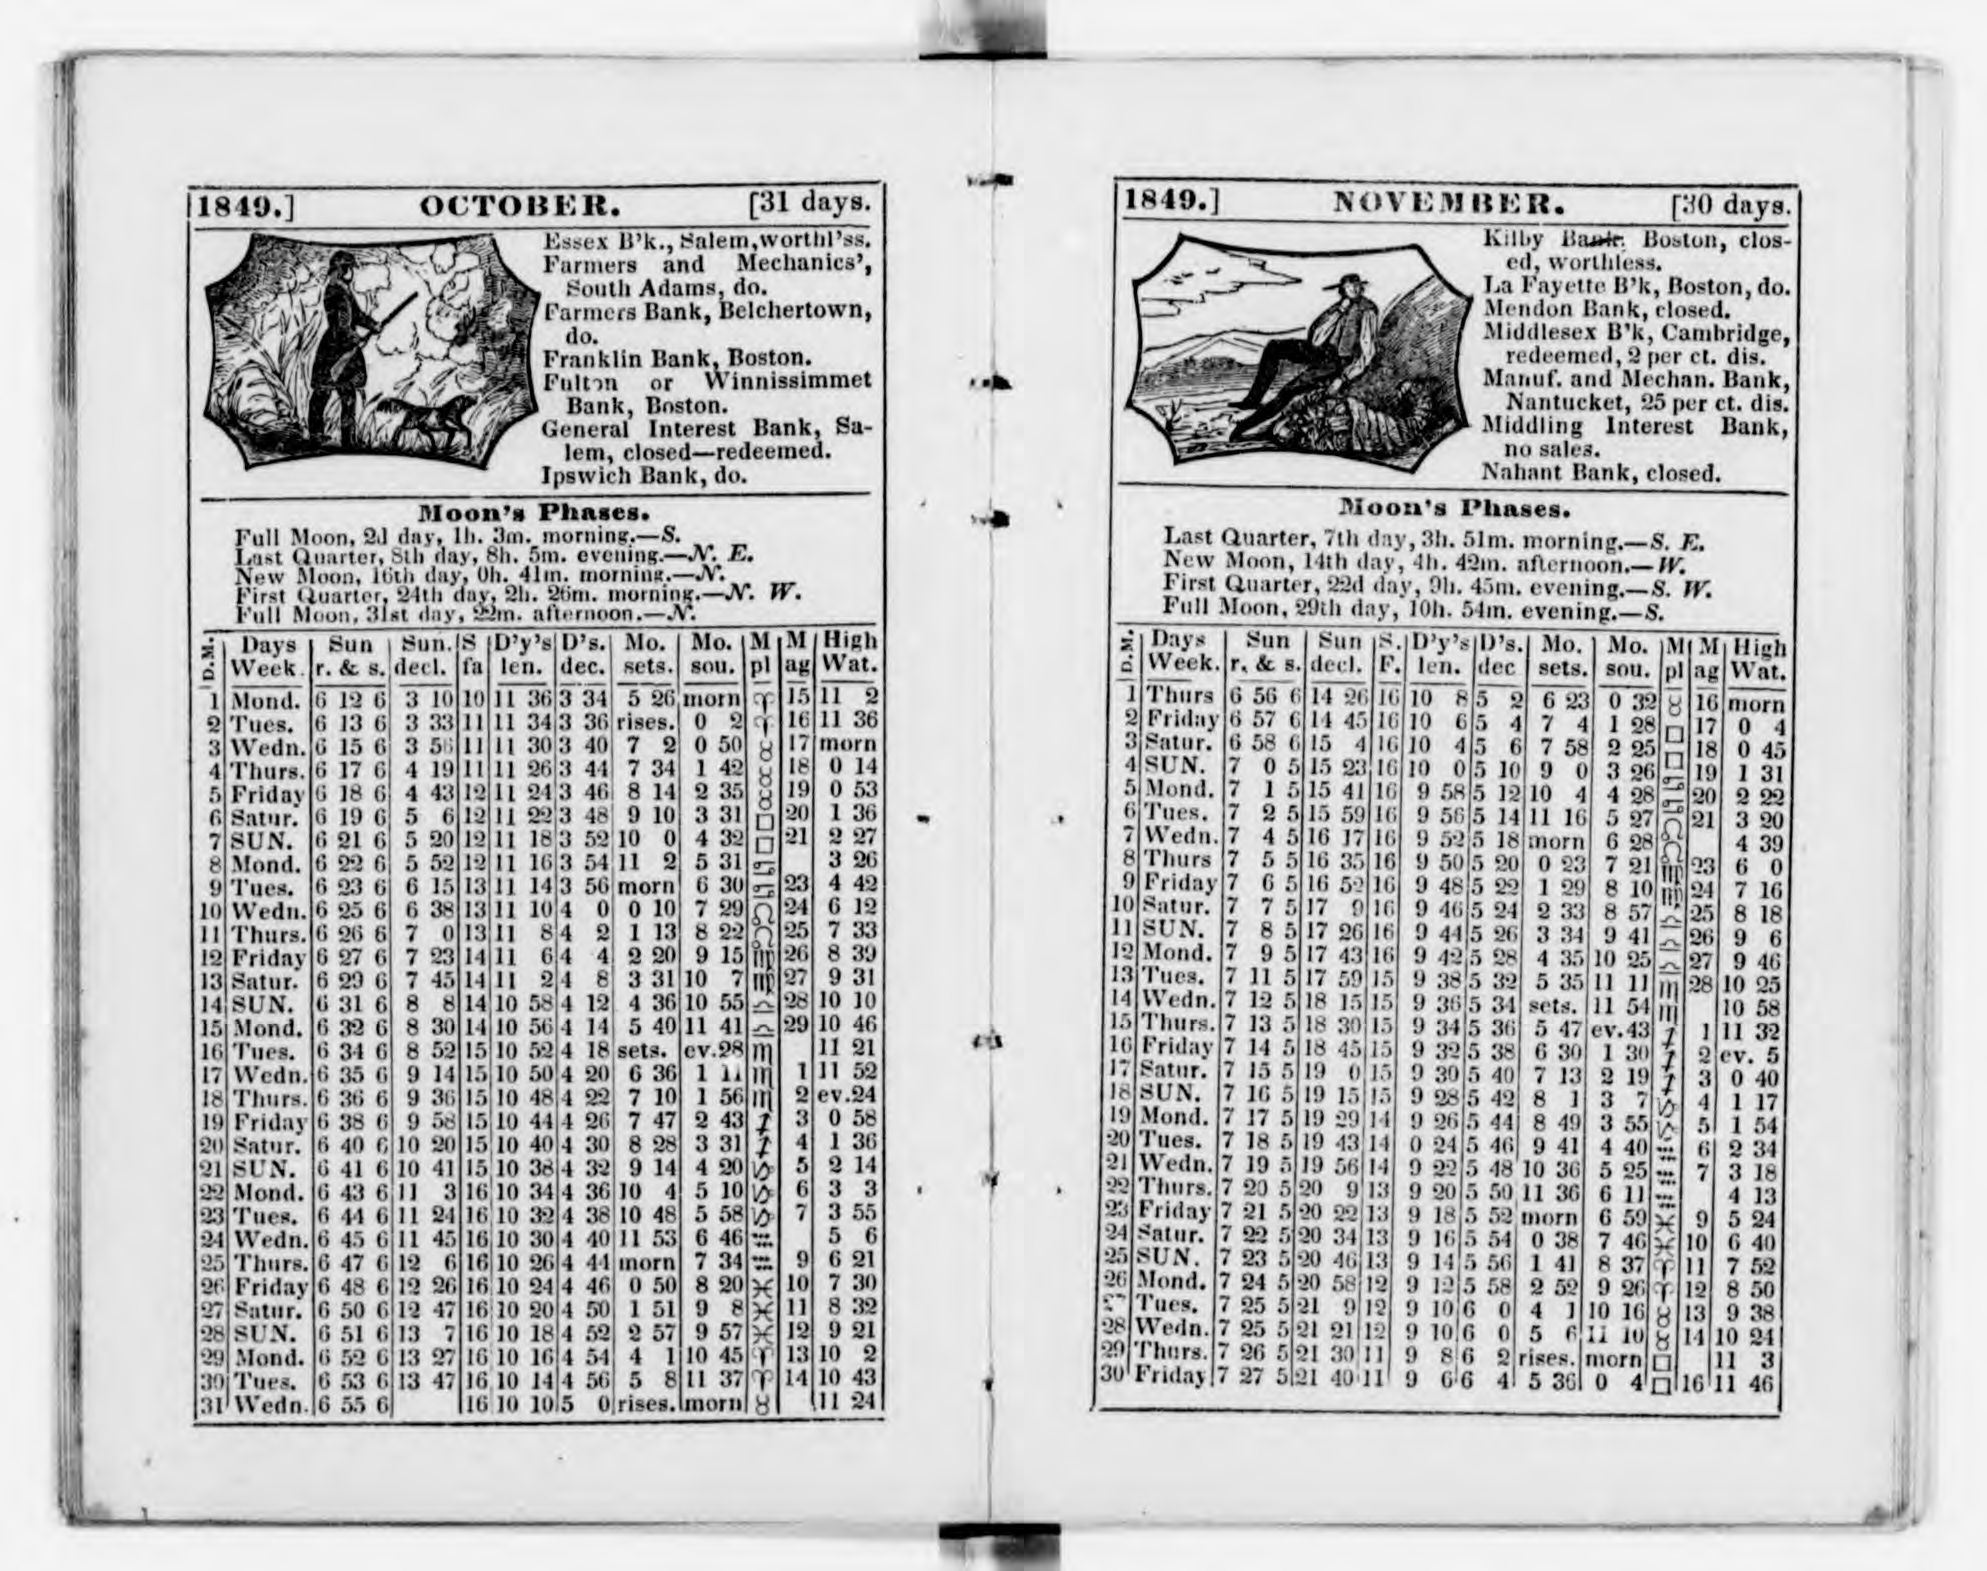 1849.] OCTOBER. [31 days.
Essex B'k., Salem, worthl'ss.
Farmers and Mechanics',
South Adams, do.
Farmers Bank, Belchertown,
do.
Franklin Bank, Boston.
Fulton or Winnissimmet
Bank, Boston.
General Interest Bank, Sa-
lem, closed—redeemed.
Ipswich Bank, do.
Moon's Phases.
Full Moon, 2d day, 1h. 3m. morning.—S.
Last Quarter, 8th day, 8h. 5m. evening.—N. E.
New Moon, 16th day, 0h. 41m. morning.—N.
First Quarter, 24th day, 2h. 26m. morning.—N. W.
Full Moon, 31st day, 22m. afternoon.—N.
D.M. Days Sun Sun. S D'y's D's. Mo. Mo. M M High
Week. r. & s. decl. fa len. dec. sets. sou. pl ag Wat.
1 Mond. 6 12 6 3 10 10 11 36 3 34 5 26 morn ♈ 15 11 2
2 Tues. 6 13 6 3 33 11 11 34 3 36 rises. 0 2 ♈ 16 11 36
3 Wedn. 6 15 6 3 56 11 11 30 3 40 7 2 0 50 ♉ 17 morn
4 Thurs. 6 17 6 4 19 11 11 26 3 44 7 34 1 42 ♉ 18 0 14
5 Friday 6 18 6 4 43 12 11 24 3 46 8 14 2 35 ♉ 19 0 53
6 Satur. 6 19 6 5 6 12 11 22 3 48 9 10 3 31 □ 20 1 36
7 SUN. 6 21 6 5 20 12 11 18 3 52 10 0 4 32 □ 21 2 27
8 Mond. 6 22 6 5 52 12 11 16 3 54 11 2 5 31 ♋ 3 26
9 Tues. 6 23 6 6 15 13 11 14 3 56 morn 6 30 ♋ 23 4 42
10 Wedn. 6 25 6 6 38 13 11 10 4 0 0 10 7 29 ♌ 24 6 12
11 Thurs. 6 26 6 7 0 13 11 8 4 2 1 13 8 22 ♌ 25 7 33
12 Friday 6 27 6 7 23 14 11 6 4 4 2 20 9 15 ♍ 26 8 39
13 Satur. 6 29 6 7 45 14 11 2 4 8 3 31 10 7 ♍ 27 9 31
14 SUN. 6 31 6 8 8 14 10 58 4 12 4 36 10 55 ♎ 28 10 10
15 Mond. 6 32 6 8 30 14 10 56 4 14 5 40 11 41 ♎ 29 10 46
16 Tues. 6 34 6 8 52 15 10 52 4 18 sets. ev.28 ♏ 11 21
17 Wedn. 6 35 6 9 14 15 10 50 4 20 6 36 1 11 ♏ 1 11 52
18 Thurs. 6 36 6 9 36 15 10 48 4 22 7 10 1 56 ♏ 2 ev.24
19 Friday 6 38 6 9 58 15 10 44 4 26 7 47 2 43 ♐ 3 0 58
20 Satur. 6 40 6 10 20 15 10 40 4 30 8 28 3 31 ♐ 4 1 36
21 SUN. 6 41 6 10 41 15 10 38 4 32 9 14 4 20 ♑ 5 2 14
22 Mond. 6 43 6 11 3 16 10 34 4 36 10 4 5 10 ♑ 6 3 3
23 Tues. 6 44 6 11 24 16 10 32 4 38 10 48 5 58 ♑ 7 3 55
24 Wedn. 6 45 6 11 45 16 10 30 4 40 11 53 6 46 ♒ 5 6
25 Thurs. 6 47 6 12 6 16 10 26 4 44 morn 7 34 ♒ 9 6 21
26 Friday 6 48 6 12 26 16 10 24 4 46 0 50 8 20 ♓ 10 7 30
27 Satur. 6 50 6 12 47 16 10 20 4 50 1 51 9 8 ♓ 11 8 32
28 SUN. 6 51 6 13 7 16 10 18 4 52 2 57 9 57 ♓ 12 9 21
29 Mond. 6 52 6 13 27 16 10 16 4 54 4 1 10 45 ♈ 13 10 2
30 Tues. 6 53 6 13 47 16 10 14 4 56 5 8 11 37 ♈ 14 10 43
31 Wedn. 6 55 6 16 10 10 5 0 rises. morn ♉ 11 24
1849.] NOVEMBER. [30 days.
Kilby Bank, Boston, clos-
ed, worthless.
La Fayette B'k, Boston, do.
Mendon Bank, closed.
Middlesex B'k, Cambridge,
redeemed, 2 per ct. dis.
Manuf. and Mechan. Bank,
Nantucket, 25 per ct. dis.
Middling Interest Bank,
no sales.
Nahant Bank, closed.
Moon's Phases.
Last Quarter, 7th day, 3h. 51m. morning.—S. E.
New Moon, 14th day, 4h. 42m. afternoon.—W.
First Quarter, 22d day, 9h. 45m. evening.—S. W.
Full Moon, 29th day, 10h. 54m. evening.—S.
D.M. Days Sun Sun S. D'y's D's. Mo. Mo. M M High
Week. r. & s. decl. F. len. dec sets. sou. pl ag Wat.
1 Thurs 6 56 6 14 26 16 10 8 5 2 6 23 0 32 ♉ 16 morn
2 Friday 6 57 6 14 45 16 10 6 5 4 7 4 1 28 □ 17 0 4
3 Satur. 6 58 6 15 4 16 10 4 5 6 7 58 2 25 □ 18 0 45
4 SUN. 7 0 5 15 23 16 10 0 5 10 9 0 3 26 ♋ 19 1 31
5 Mond. 7 1 5 15 41 16 9 58 5 12 10 4 4 28 ♋ 20 2 22
6 Tues. 7 2 5 15 59 16 9 56 5 14 11 16 5 27 ♌ 21 3 20
7 Wedn. 7 4 5 16 17 16 9 52 5 18 morn 6 28 ♌ 4 39
8 Thurs 7 5 5 16 35 16 9 50 5 20 0 23 7 21 ♍ 23 6 0
9 Friday 7 6 5 16 52 16 9 48 5 22 1 29 8 10 ♍ 24 7 16
10 Satur. 7 7 5 17 9 16 9 46 5 24 2 33 8 57 ♎ 25 8 18
11 SUN. 7 8 5 17 26 16 9 44 5 26 3 34 9 41 ♎ 26 9 6
12 Mond. 7 9 5 17 43 16 9 42 5 28 4 35 10 25 ♎ 27 9 46
13 Tues. 7 11 5 17 59 15 9 38 5 32 5 35 11 11 ♏ 28 10 25
14 Wedn. 7 12 5 18 15 15 9 36 5 34 sets. 11 54 ♏ 10 58
15 Thurs. 7 13 5 18 30 15 9 34 5 36 5 47 ev.43 ♐ 1 11 32
16 Friday 7 14 5 18 45 15 9 32 5 38 6 30 1 30 ♐ 2 ev. 5
17 Satur. 7 15 5 19 0 15 9 30 5 40 7 13 2 19 ♐ 3 0 40
18 SUN. 7 16 5 19 15 15 9 28 5 42 8 1 3 7 ♑ 4 1 17
19 Mond. 7 17 5 19 29 14 9 26 5 44 8 49 3 55 ♑ 5 1 54
20 Tues. 7 18 5 19 43 14 0 24 5 46 9 41 4 40 ♒ 6 2 34
21 Wedn. 7 19 5 19 56 14 9 22 5 48 10 36 5 25 ♒ 7 3 18
22 Thurs. 7 20 5 20 9 13 9 20 5 50 11 36 6 11 ♒ 4 13
23 Friday 7 21 5 20 22 13 9 18 5 52 morn 6 59 ♓ 9 5 24
24 Satur. 7 22 5 20 34 13 9 16 5 54 0 38 7 46 ♓ 10 6 40
25 SUN. 7 23 5 20 46 13 9 14 5 56 1 41 8 37 ♈ 11 7 52
26 Mond. 7 24 5 20 58 12 9 12 5 58 2 52 9 26 ♈ 12 8 50
Tues. 7 25 5 21 9 12 9 10 6 0 4 1 10 16 ♉ 13 9 38
28 Wedn. 7 25 5 21 21 12 9 10 6 0 5 6 11 10 ♉ 14 10 24
29 Thurs. 7 26 5 21 30 11 9 8 6 2 rises. morn □ 11 3
30 Friday 7 27 5 21 40 11 9 6 6 4 5 36 0 4 □ 16 11 46